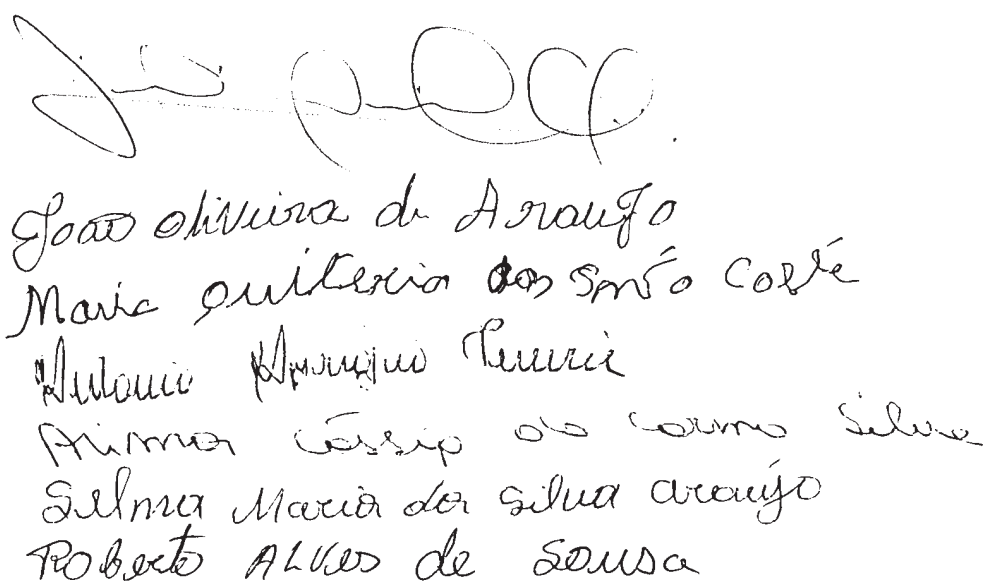 João Oliveira de Araujo
Maria Quiteria dos Santo Costa
Antonio Henrique
Cássio do Carmo Silva
Selma Maria da Silva Araújo
Roberto ALVES de Sousa